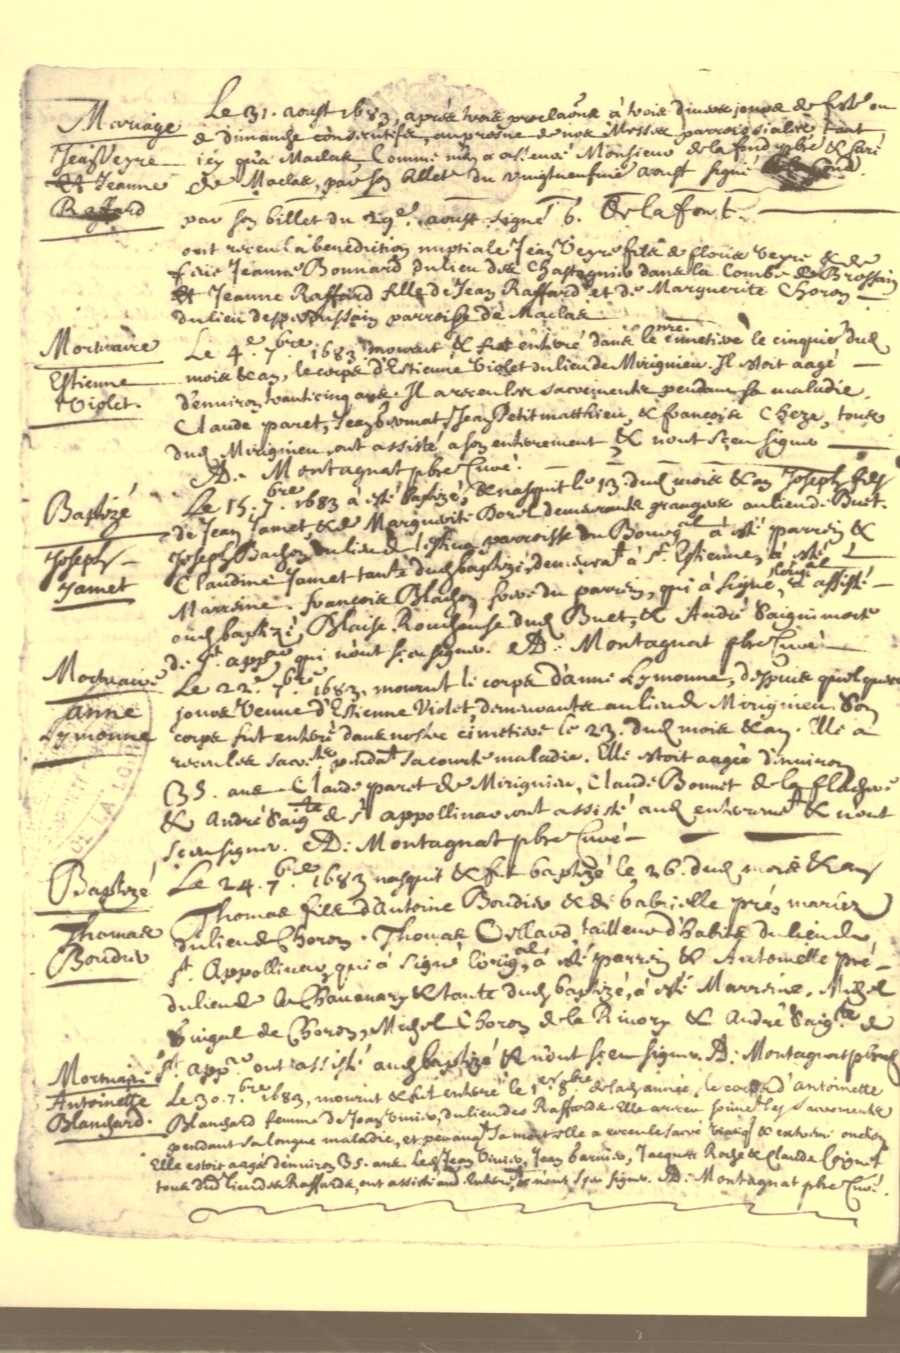 Mariage
Jean Veyre
Et Jeanne
Raffard
Le 31. aoust 1683, après trois proclaõns à trois divers jours de feste ou
de dimanche consecutifs, au prosne de nos Messes parroissiales, tant
icy qu'a Maclas, Comme m'en a asseuré Monsieur de la fond pbre & curé
de Maclas, par son billet du vingtneufme aoust signé
par son billet du 29e. aoust signé b. Delafont.
ont receu la benediction nuptiale Jean Veyre fils de floris veyre & de
feüe Jeanne Bonnard du lieu des Chastagnier dans la Combe de Brossain
Et Jeanne Raffard fille de Jean Raffard et de Marguerite Choron
du lieu despeoussain parroisse de Maclas
Mortuaire
Estienne
Violet.
Le 4e. 7bre. 1683 mourut & fut enterré dans le cimetiere le cinqme dud
mois & an, le corps d'Estienne Violet du lieu de Mirignieu. Il estoit aagé
d'environ trante cinq ans. Il a receu les sacrements pendant sa maladie.
Claude paret, Jean Fromat, Jean Petit matthieu, & françois Cheze, tous
dud Mirignieu ont assisté a son enterrement & n'ont sceu signer
AD. Montagnat pbre Curé.
Baptizé
Joseph
Jamet
Le 15. 7bre 1683 à esté baptizé, & nasquit le 13. dud mois & an Joseph fils
de Jean Jamet & de Marguerite Borel demeurants grangers au lieu de Buet.
Joseph Bachon du lieu de parroisse du Bourg à esté parrein &
Claudine Jamet tante dud baptizé, demeurat à St. Estienne, a esté
Marreine. françois Blachon frere du parrein, qui à signé l'orig.al, & assisté
aud baptizé, Blaise Rouchouse dud Buet, & André Saignimorte
de St. appre qui n'ont sceu signer. AD. Montagnat pbre Curé
Mortuaire
anne
Lymonne
Le 22e. 7bre 1683. mourut le corps d'anne Lymonne, despuis quelques
jours veuve d'Estienne Violet, demeurante au lieu de Mirignieu. Son
corps fut enterré dans nostre cimetiere le 23. dud mois & an. Elle à
receu les sacrets pendat sa courte maladie. Elle estoit aagée d'environ
35. ans. Claude paret de Mirignieu, Claude Bonnet de la flachere
& André Saigte de St appollinar ont assisté aud enterremt & n'ont
sceu signer. AD. Montagnat pbre Curé
Baptizé
Thomas
Boudier
Le 24. 7bre 1683 nasquit & fut baptizé le 26. dud mois & an
Thomas fils d'antoine Boudier & de Gabrielle pré, mariez
du lieu de Choron. Thomas Orlland, tailleur d'habits du lieu de
St. Appollinar, qui à signé l'orig.al, à esté parrein & Antoinette pré
du lieu de Chavanary & tante dud baptizé, à esté Marreine. Michel
Gingal de Choron, Michel Choron de la Rivory & André Saigte de
St. appre ont assisté aud baptizé & n'ont sceu signer. AD. Montagnat pbre C
Mortuaire
Antoinette
Blanchard.
Le 30. 7bre. 1683, mourut & fut enterré le 1er. 8bre. de lad année, le corps d'antoinette
Blanchard femme de Jean Vivier, du lieu des Raffards. Elle a receu les sacrements
pendant sa longue maladie, et pendant sa mort elle a receu le sacré viatiq & extreme onction
Elle estoit aagée d'environ 35. ans. Led Jean Vivier, Jean barnier, Jacques Roche & Claude Coignet
tous dud lieu des Raffards, ont assisté aud. Enterremt, & n'ont sceu signer. AD. Montagnat pbre Curé.
DE LA LOIRE